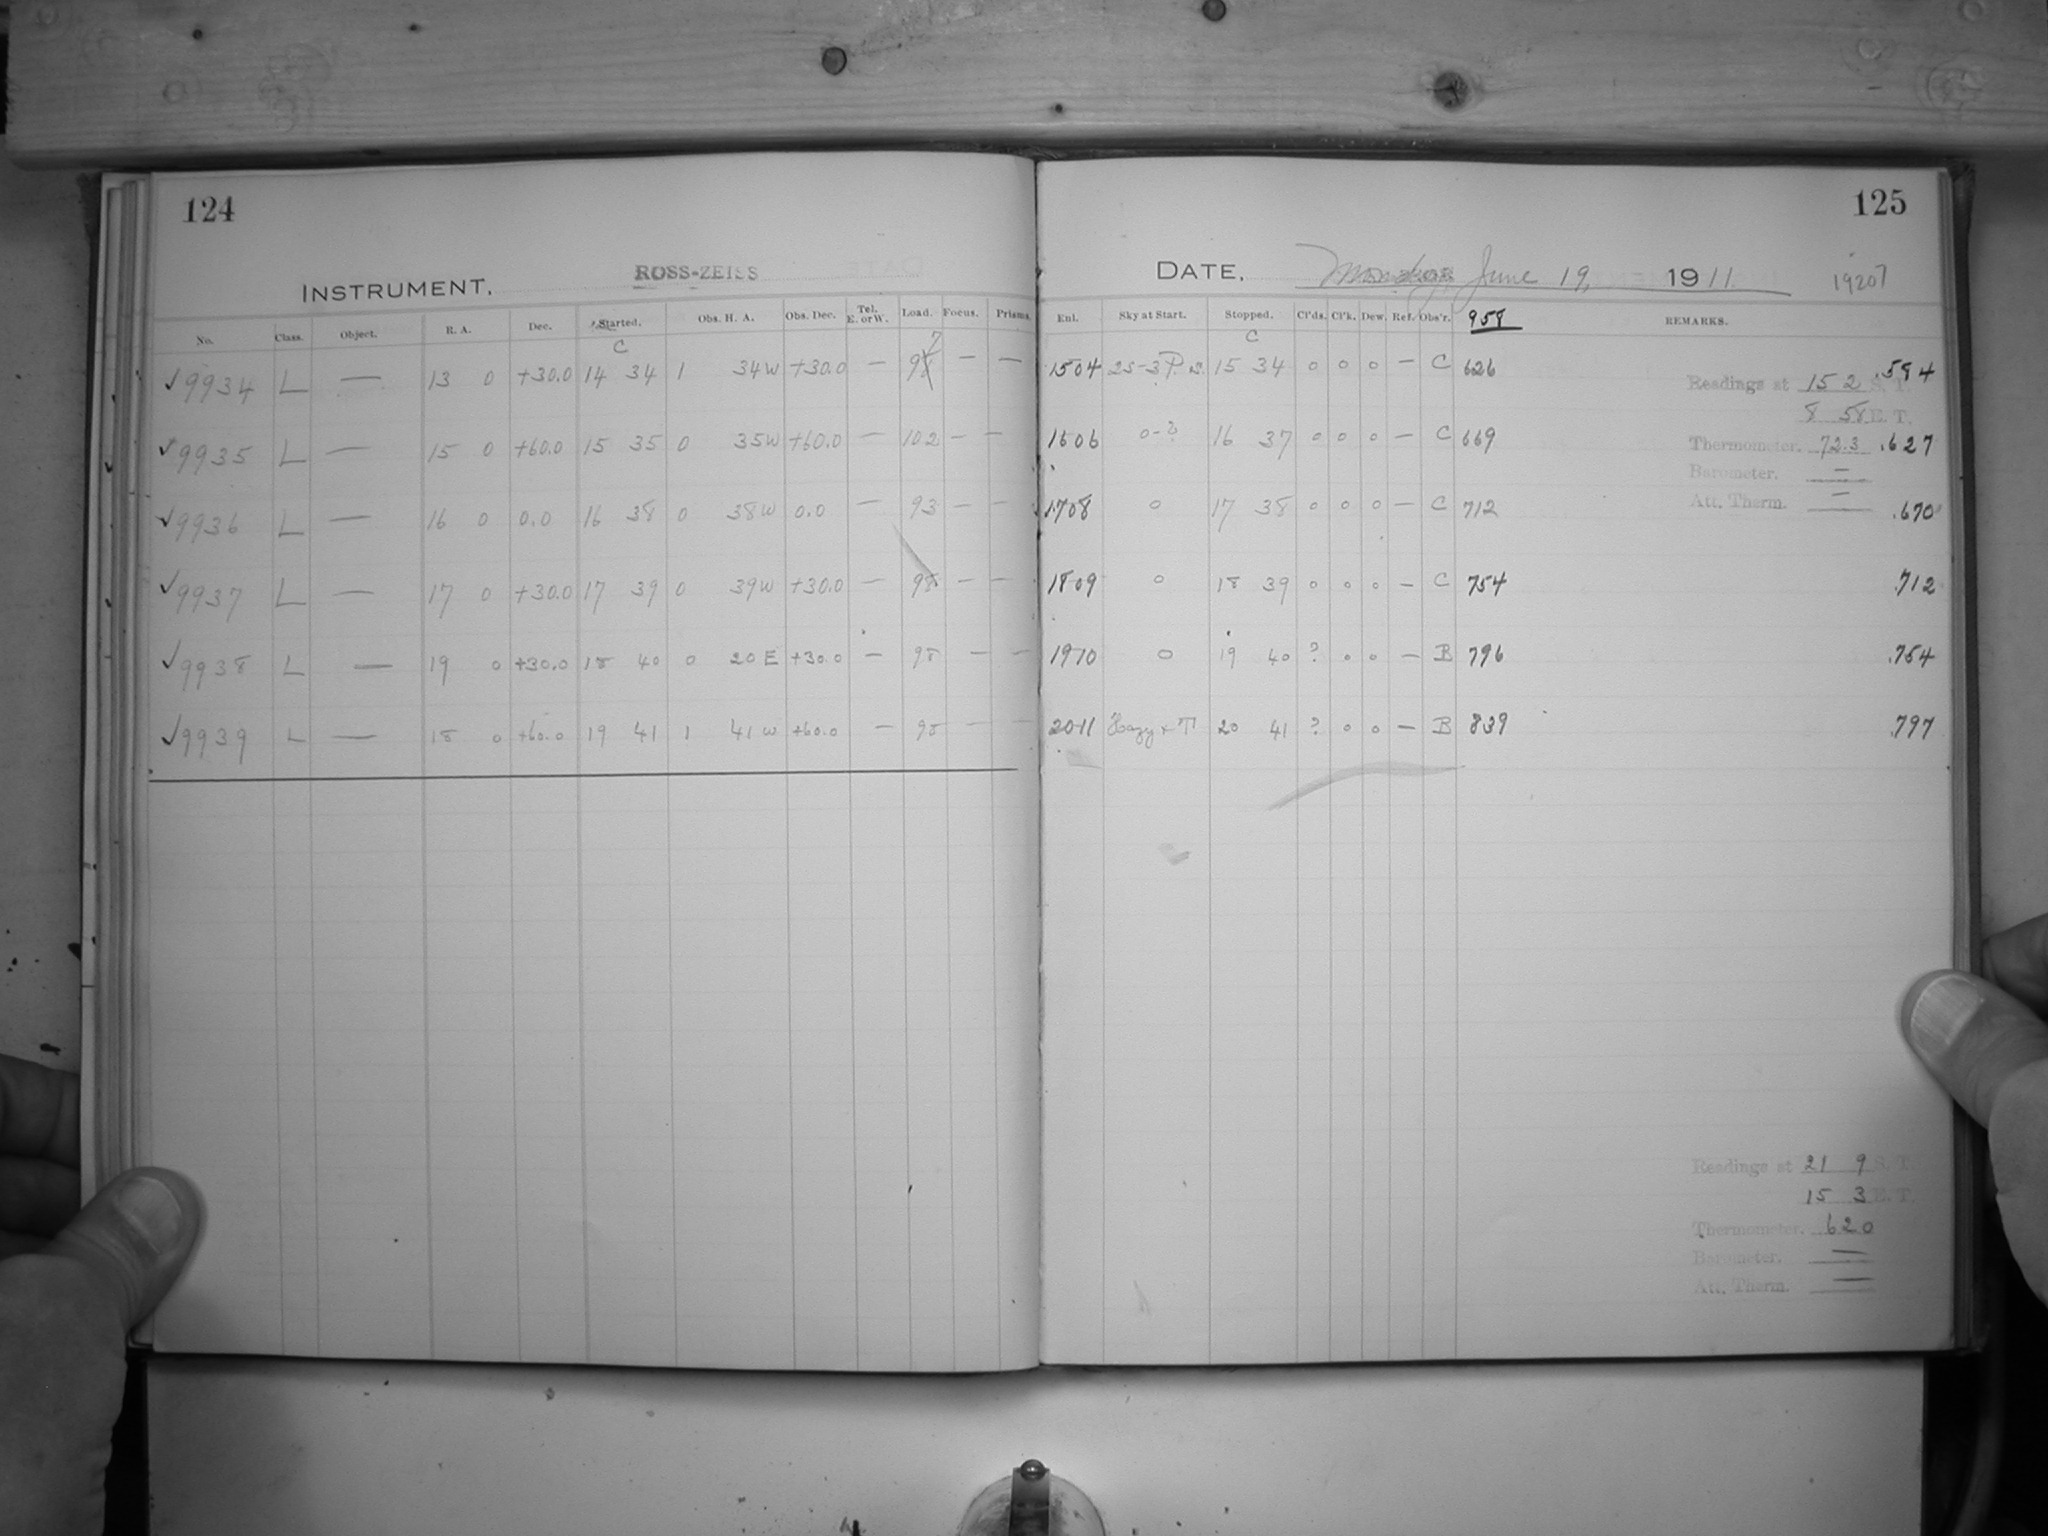 124
INSTRUMENT. ROSS-ZEISS
No. Class. Object. R. A. Dec. Started. Obs. H. A. Obs. Dec. Tel. E. or W. Load. Focus. Prisms.
C
✓9934 L — 13 0 +30.0 14 34 1 34W +30.0 — 98 7 — —
✓9935 L — 15 0 +60.0 15 35 0 35W +60.0 — 102 — —
✓9936 L — 16 0 0.0 16 38 0 38W 0.0 — 93 — —
✓9937 L — 17 0 +30.0 17 39 0 39W +30.0 — 98 — —
✓9938 L — 19 0 +30.0 18 40 0 20 E +30.0 — 98 — —
✓9939 L — 18 0 +60.0 19 41 1 41W +60.0 — 98 — —
125
DATE, Monday, June 19, 1911. 19207
Enl. Sky at Start. Stopped. Cl'ds. Cl'k. Dew. Ref. Obs'r. 958 REMARKS.
C
1504 15 34 0 0 0 — C 626 .584
Readings at 15 2 S. T.
8 58 E. T.
1606 0-? 16 37 0 0 0 — C 669 Thermometer. 72.3 .627
Barometer. —
Att. Therm. —
1708 0 17 38 0 0 0 — C 712 .670
1809 0 18 39 0 0 0 — C 754 .712
1910 0 19 40 ? 0 0 — B 796 .754
2011 Hazy + 20 41 ? 0 0 — B 839 .797
Readings at 21 9 S. T.
15 3 E. T.
Thermometer. 62.0
Barometer. —
Att. Therm. —